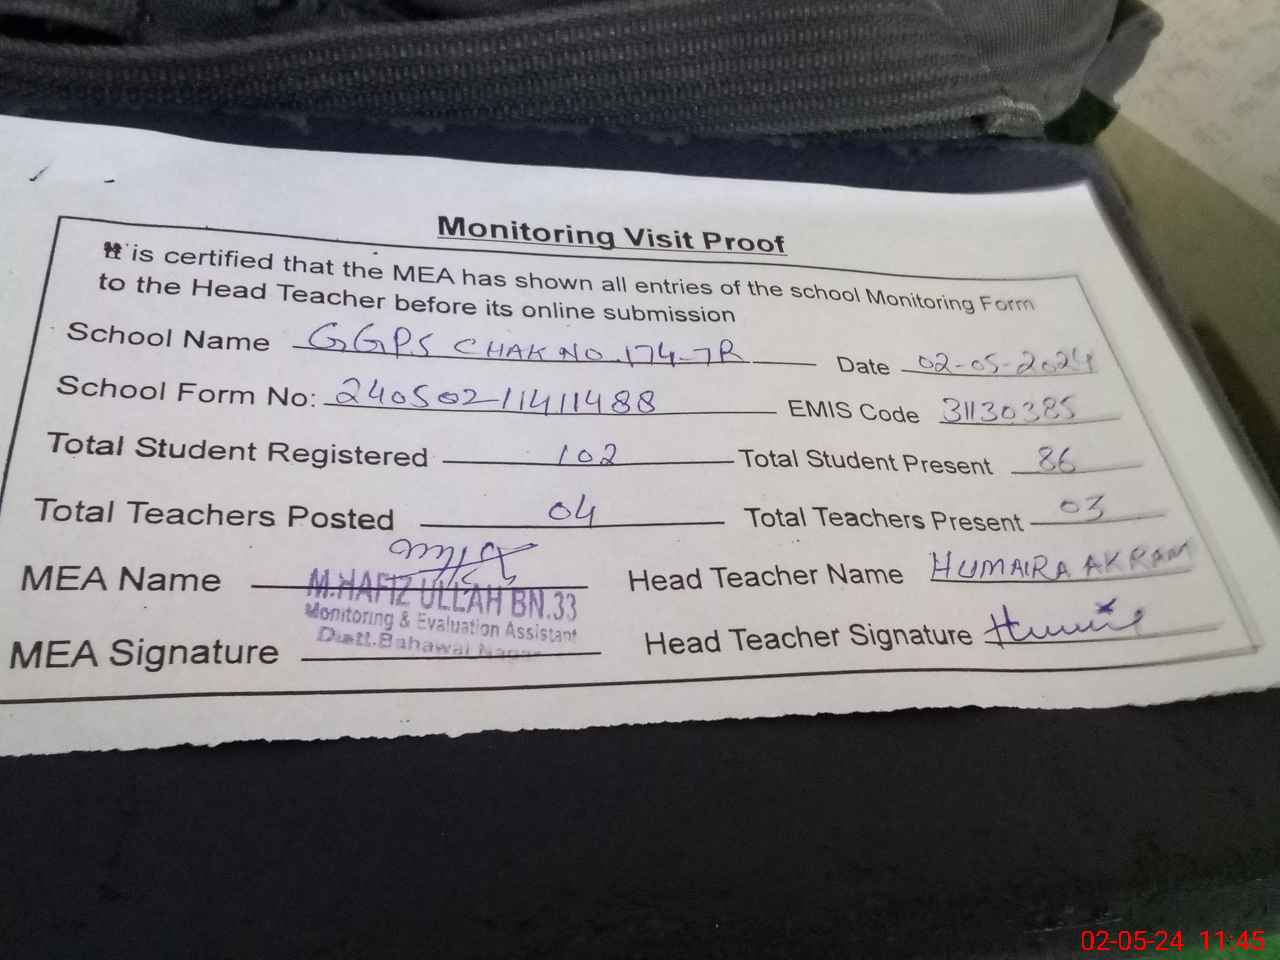 Monitoring Visit Proof
It is certified that the MEA has shown all entries of the school Monitoring Form
to the Head Teacher before its online submission
School Name GGPS CHAK NO. 174-7R Date 02-05-2024
School Form No: 24050211411488 EMIS Code 31130385
Total Student Registered 102 Total Student Present 86
Total Teachers Posted 04 Total Teachers Present 03
MEA Name M.HAFIZ ULLAH BN.33 Head Teacher Name HUMAIRA AKRAM
Monitoring & Evaluation Assistant
Distt.Bahawal Nagar
MEA Signature Head Teacher Signature
02-05-24 11:45